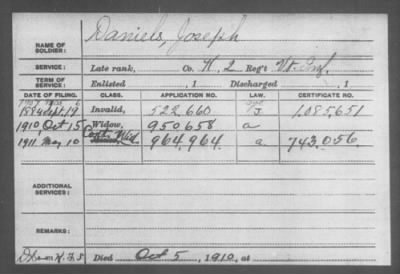 Daniels, Joseph
NAME OF SOLDIER:
SERVICE: Late rank, Co. K, 2 Reg't Vt. Inf.
TERM OF SERVICE: Enlisted , 1 Discharged , 1
DATE OF FILING. CLASS. APPLICATION NO. LAW. CERTIFICATE NO.
1884 Sept 19 Invalid, 522,660 J 1,085,651
1910, Oct 15 Widow, 950658 a
1911 May 10 Cont. Wid 964,964 a. 743,056
ADDITIONAL SERVICES:
REMARKS:
Died Oct 5, 1910, at